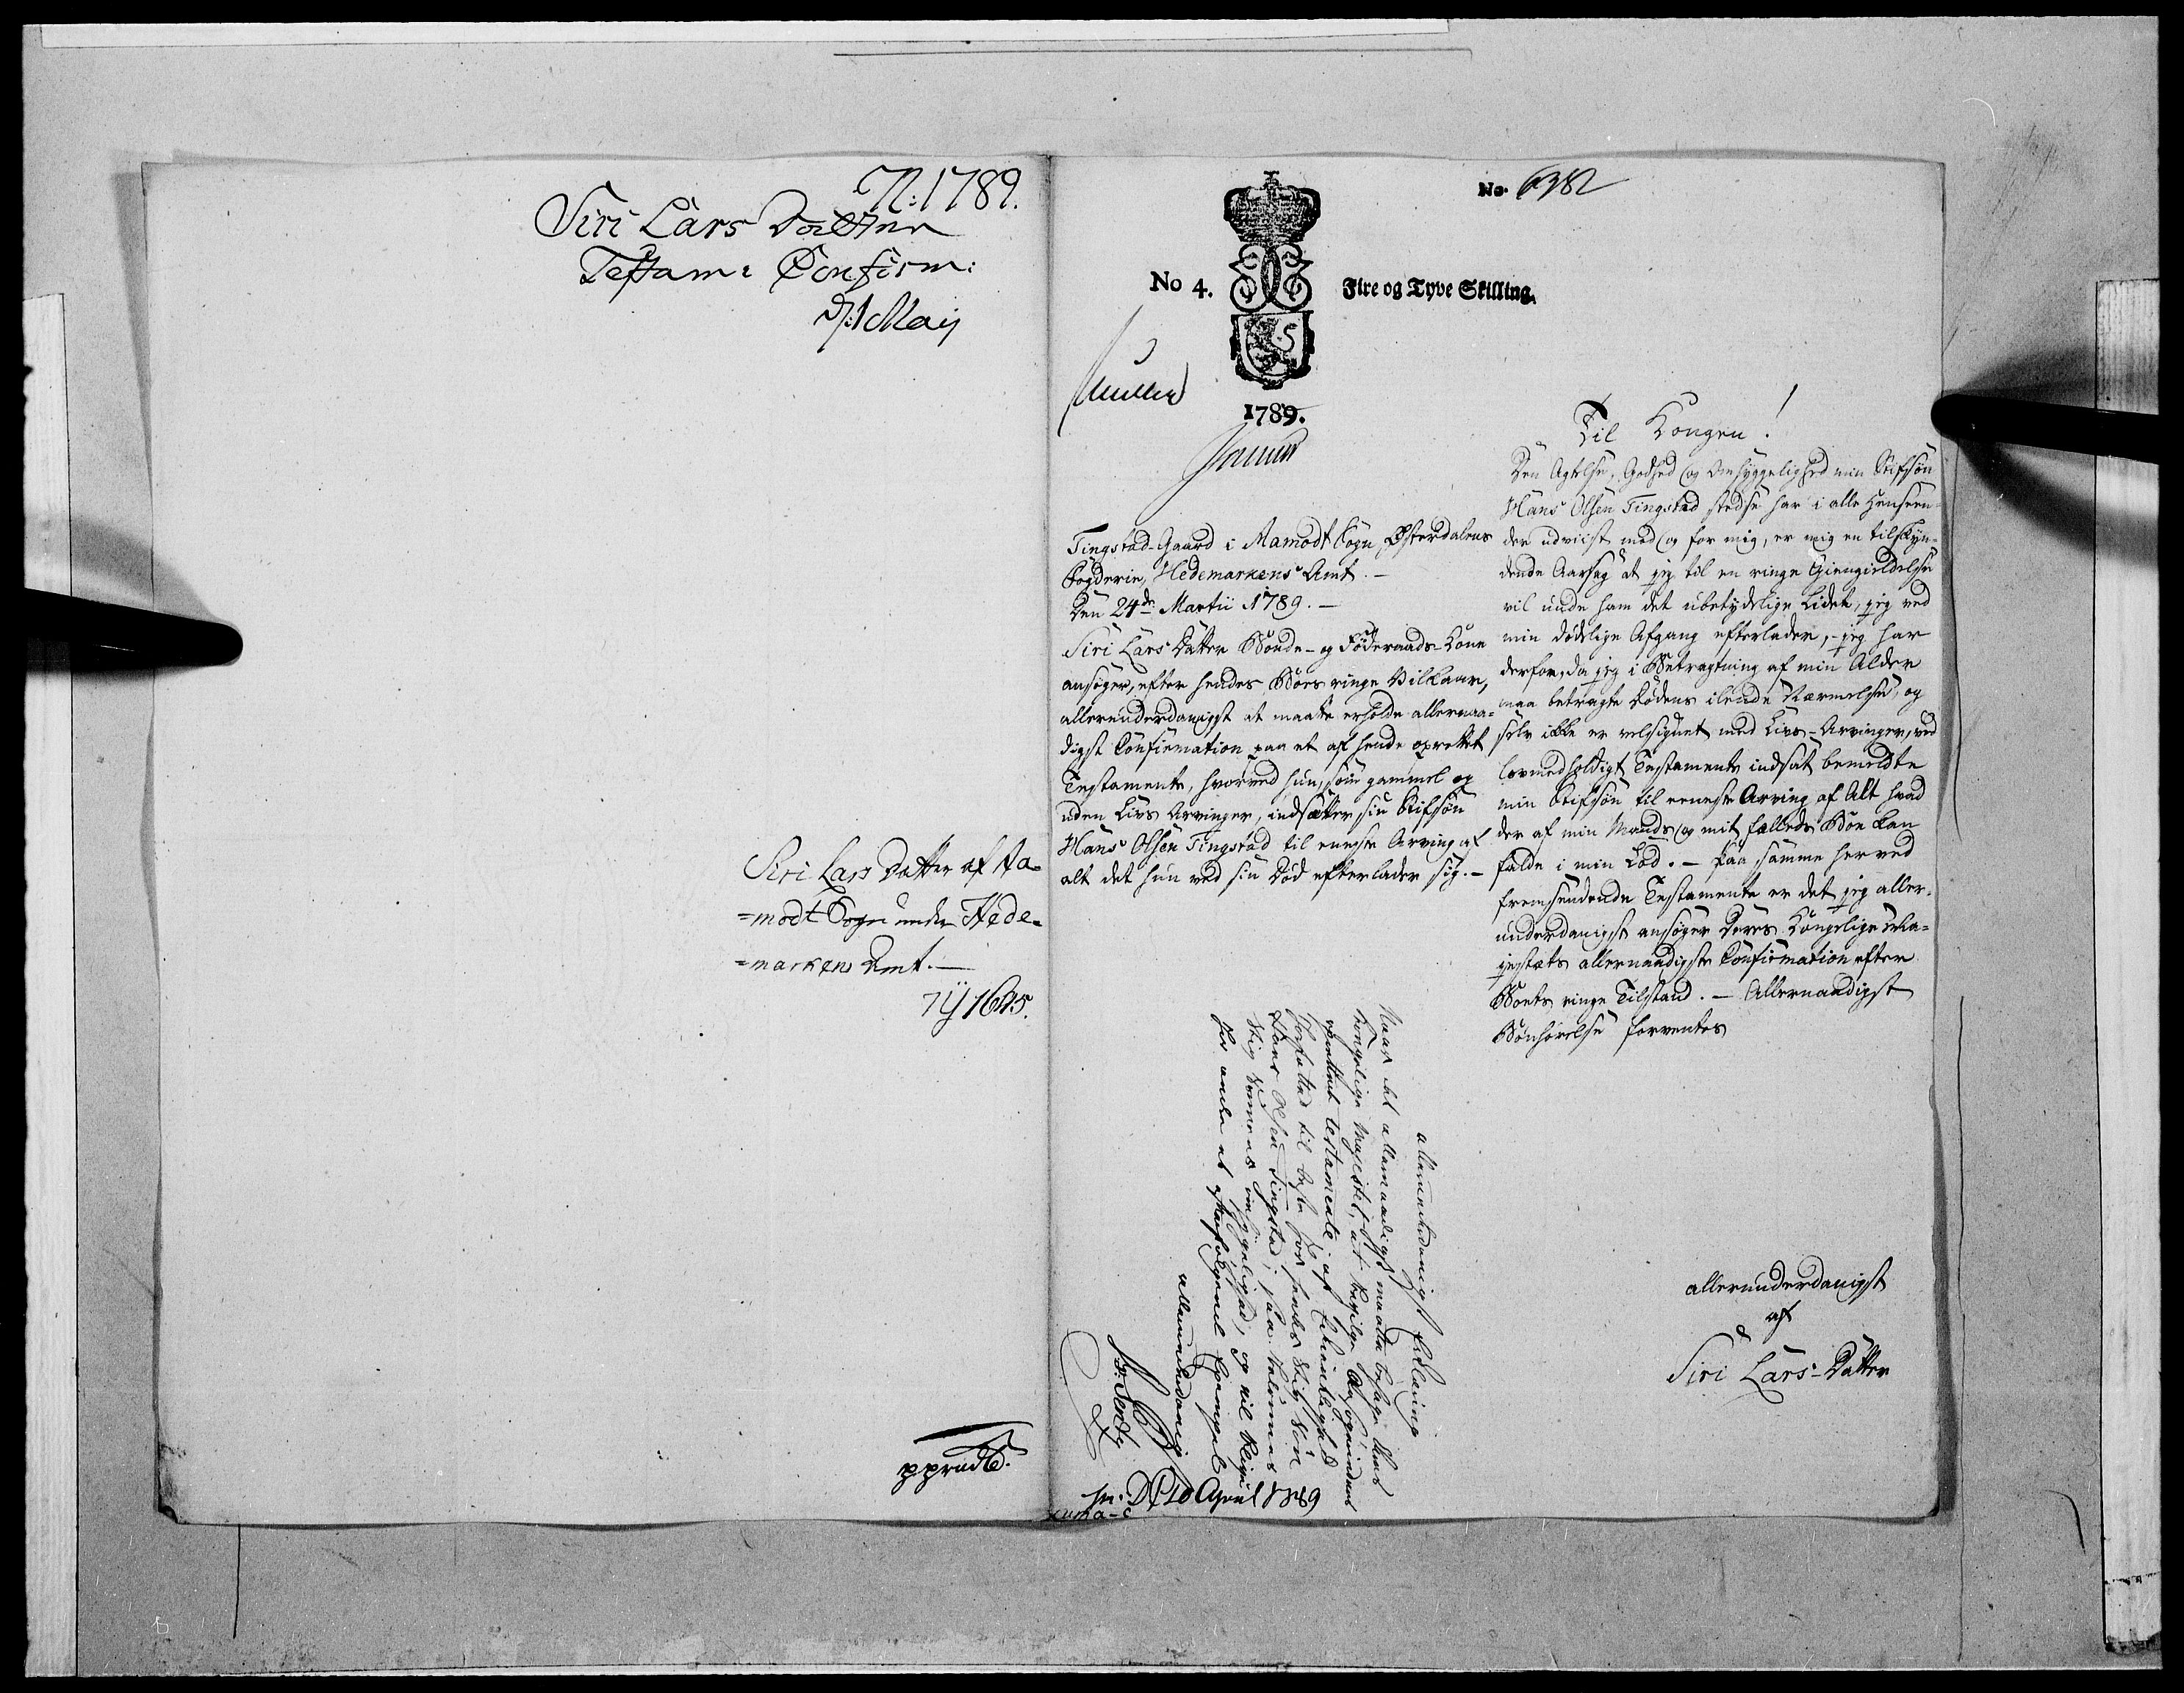 N: 1789.
Siri Lars Datter
Testam: Confirm:
d: 1 Maij
Siri Lars Datter af Aa-
=modt Sogn under Hede-
=markens Amt.—
No. 6382
No 4. Fire og Tyve Skilling.
1789.
Tingstad-Gaard i Aamodt Sogn, Østerdalens
Fogderie, Hedemarkens Amt.—
Den 24de Martii 1789.—
Siri Lars Datter Bonde- og Føderaads-Kone
ansøger, efter hendes Boes ringe Vilkaar,
allerunderdanigst at maatte erholde allernaa-
digst Confirmation paa et af hende oprettet
Testamente, hvorved hun, som gammel og
uden Livs Arvinger, indsætter sin Stifsøn
Hans Olsen Tingstad til eneste Arving af
alt det hun ved sin Død efterlader sig.—
Til Kongen!
Den Agtelse, Godhed og Omhyggelighed min Stifsøn
Hans Olsen Tingstad stedse har i alle Henseen-
der udviist med og for mig, er mig en tilskyn-
dende Aarsag at jeg til en ringe Giengieldelse
vil unde ham det ubetydelige Lidet, jeg ved
min dødelige Afgang efterlader,- jeg har
derfor, da jeg i Betragtning af min Alder
maa betragte Dødens ilende Nærmelse, og
selv ikke er velsignet med Livs-Arvinger, ved
lovmedholdigt Testamente indsat bemeldte
min Stifsøn til eeneste Arving af Alt hvad
der af min Mands og mit fælleds Boe kan
falde i min Lod.— Paa samme herved
fremsendende Testamente er det jeg aller-
underdanigst ansøger Deres Kongelige Ma-
jestæts allernaadigste Confirmation efter
Boets ringe Tilstand.— Allernaadigst
Bønhørelse forventes
allerunderdanigst
af
Siri Lars-Datter
allerunderdanigst Erklæring
Naar det allernaadigst maatte behage Deres
Kongelige Majestet, at
oprettet testamente, af
til beste for hendes Stif Søn
Hans Olsen Tingstad;
og vil
allerunderdanigst
10 April 1789